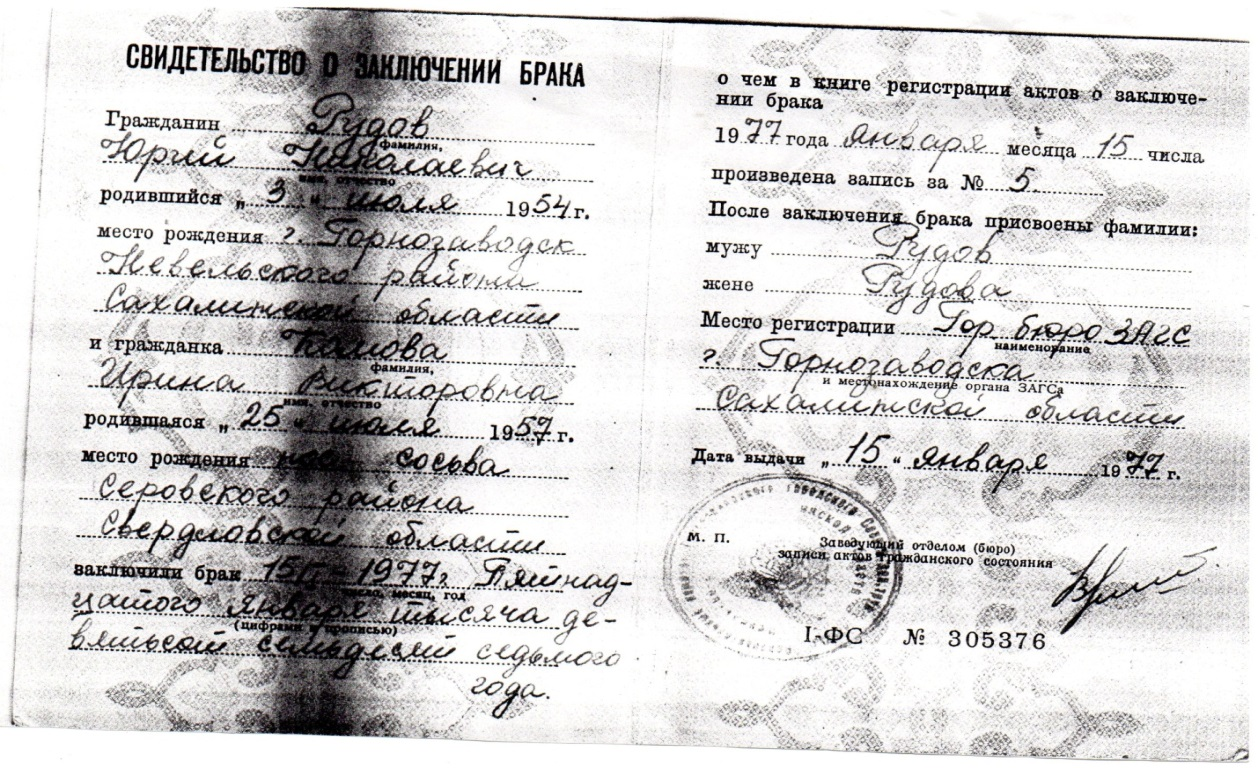 СВИДЕТЕЛЬСТВО О ЗАКЛЮЧЕНИИ БРАКА
Гражданин Рудов
фамилия,
Юрий Николаевич
имя отчество
родившийся „ 3 “ июля 1954 г.
место рождения г. Горнозаводск
Невельского района
Сахалинской области
и гражданка
фамилия,
Ирина Викторовна
имя отчество
родившаяся „ 25 “ июля 1957 г.
место рождения пос. Сосьва
Серовского района
Свердловской области
заключили брак 15/I 1977г. Пятнад-
число, месяц, год
цатого января тысяча де-
(цифрами и прописью)
вятьсот семьдесят седьмого
года.
о чем в книге регистрации актов о заключе-
нии брака
1977 года января месяца 15 числа
произведена запись за № 5.
После заключения брака присвоены фамилии:
мужу Рудов
жене Рудова
Место регистрации Гор. бюро ЗАГС
наименование
г. Горнозаводска
и местонахождение органа ЗАГСа
Сахалинской области
Дата выдачи „ 15 “ января 1977 г.
М. П.
Заведующий отделом (бюро)
записи актов гражданского состояния
I-ФС № 305376